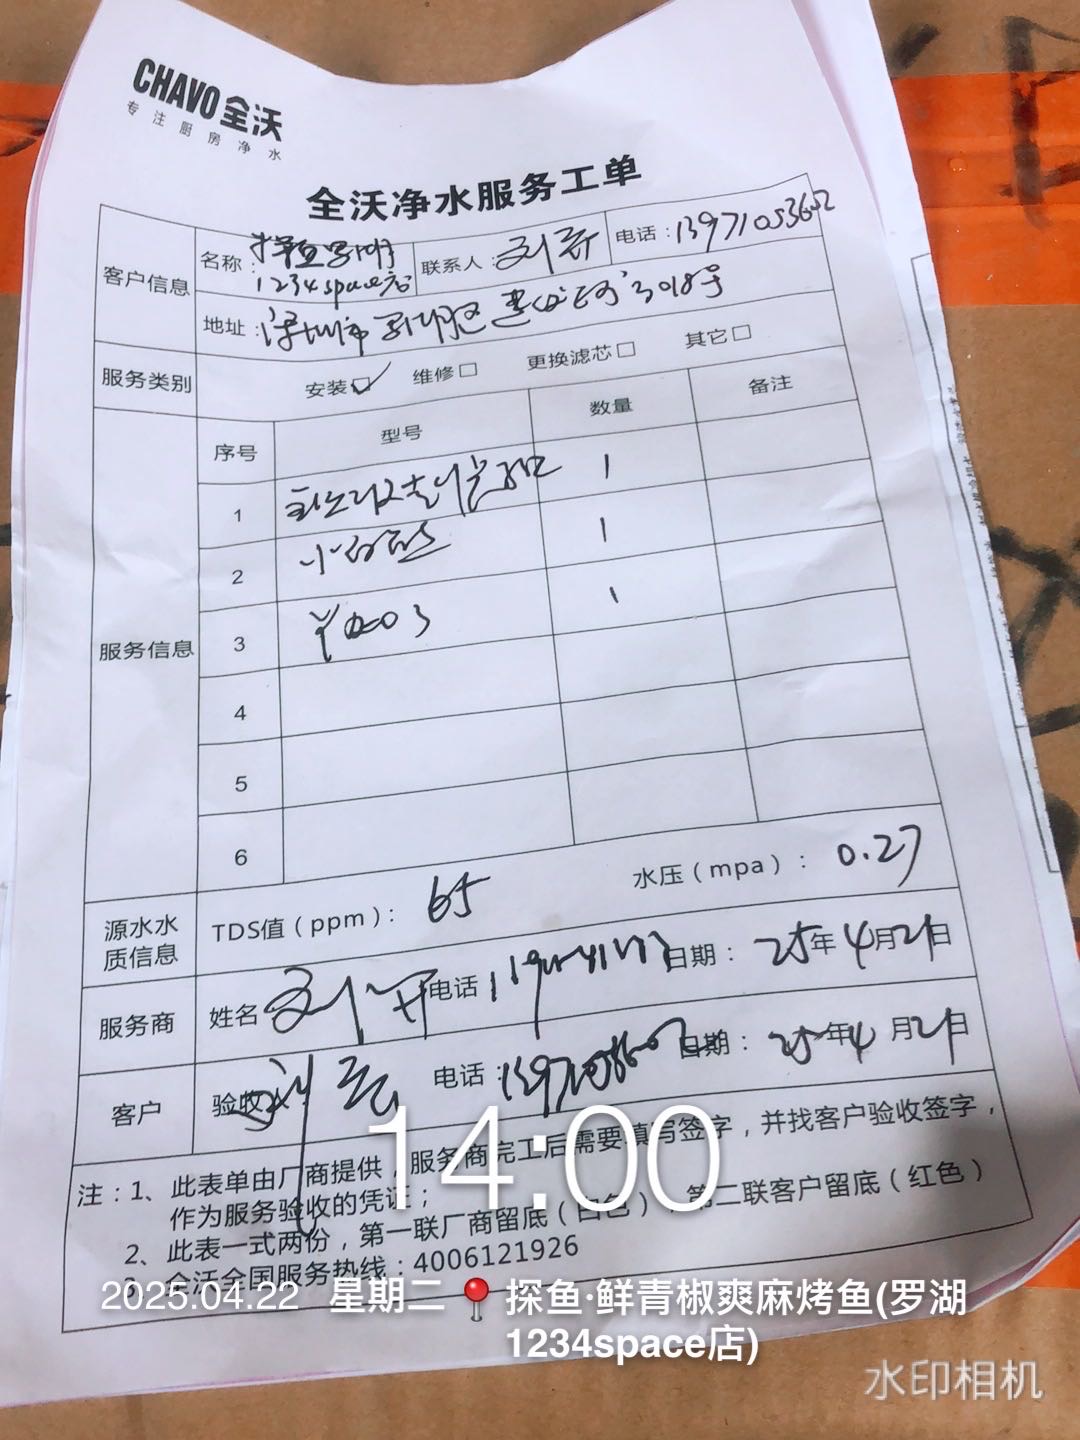 CHAVO 全沃
专注厨房净水
全沃净水服务工单
客户信息 名称: 探鱼罗湖 1234space店 联系人: 刘 电话: 13971053602
地址: 深圳市罗湖区 3018号
服务类别 安装☑ 维修□ 更换滤芯□ 其它□
服务信息 序号 型号 数量 备注
1 1
2 1
3 1
4
5
6
源水水质信息 TDS值(ppm): 65 水压(mpa): 0.27
服务商 姓名 刘 电话 日期: 25年4月21日
客户 验收人: 刘 电话: 日期: 25年4月21日
注:1、此表单由厂商提供,服务商完工后需要填写签字,并找客户验收签字,
作为服务验收的凭证;
2、此表一式两份,第一联厂商留底(白色) 第二联客户留底(红色)
3、全沃全国服务热线:4006121926
14:00
2025.04.22 星期二 探鱼·鲜青椒爽麻烤鱼(罗湖
1234space店)
水印相机